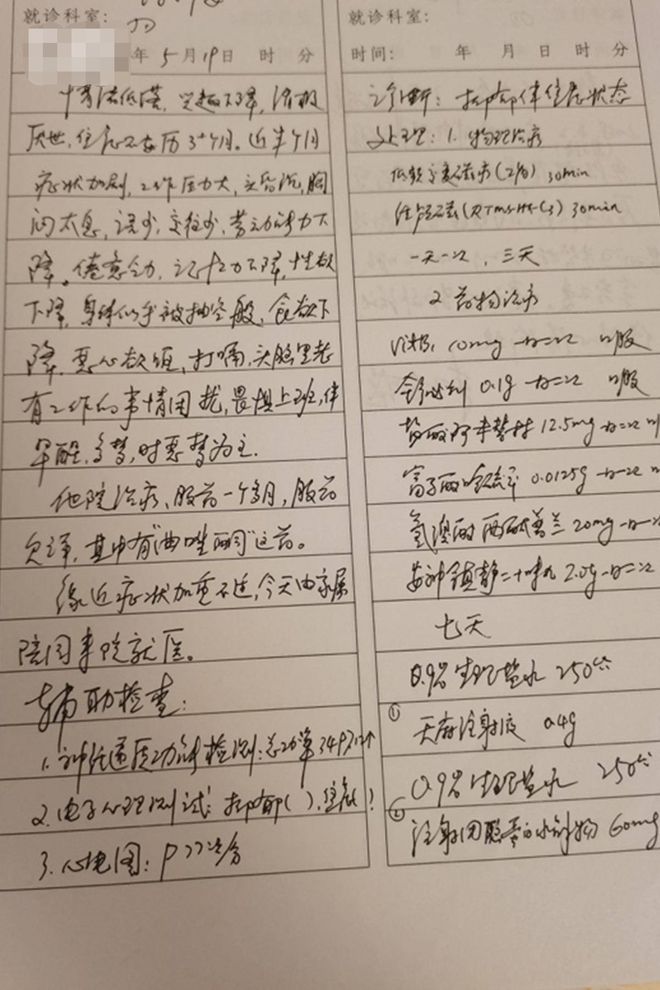 就诊科室：
年 5 月 19 日 时 分
情绪低落，兴趣下降，消极
厌世，焦虑不安历3+个月。近半个月
症状加剧，工作压力大，头昏沉，胸
闷太息，话少，交往少，劳动能力下
降。倦怠乏力，记忆力下降，性欲
下降，身体似乎被抽空般，食欲下
降，恶心欲呕，打嗝，头脑里老
有工作的事情困扰，畏惧上班，伴
早醒，多梦，时恶梦为主。
他院治疗，服药一个多月，服药
欠详，其中有"曲唑酮"这药。
缘近症状加重不适，今天由家属
陪同来院就医。
辅助检查：
1. 神经递质功能检测：总功率349
2. 电子心理测试：抑郁( )，焦虑
3. 心电图：P 77次/分
就诊科室：
时间： 年 月 日 时 分
诊断：抑郁伴焦虑状态
处理：1. 物理治疗
30min
30min
一天一次，三天
2. 药物治疗
VitB1 10mg 一日二次 口服
0.1g 一日二次 口服
12.5mg 一日二次
富马酸喹硫平 0.0125g 一日二次
氢溴酸西酞普兰 20mg 一日一次
安神镇静二十味丸 2.0g 一日二次
七天
0.9% 生理盐水 250
① 天麻注射液 0.4g
0.9% 生理盐水 250
② 注射用脑蛋白水解物 60mg